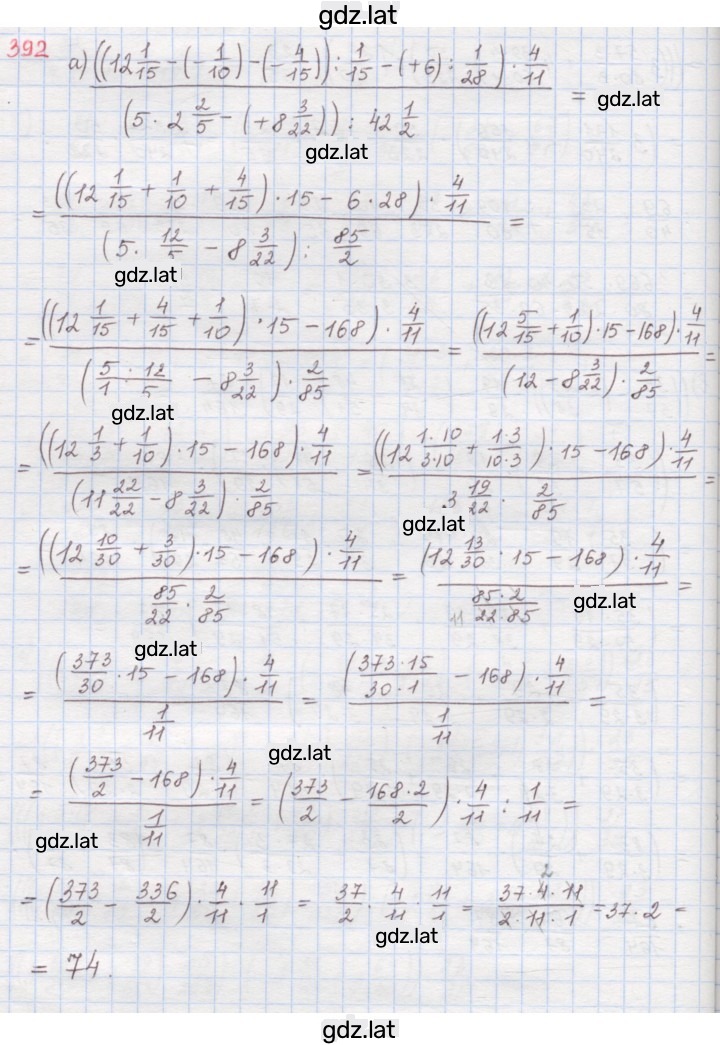 gdz.lat
392 а) ((12 1/15 − (− 1/10) − (− 4/15)) : 1/15 − (+6) : 1/28) · 4/11 / (5 · 2 2/5 − (+8 3/22)) : 42 1/2 = gdz.lat
gdz.lat
= ((12 1/15 + 1/10 + 4/15) · 15 − 6 · 28) · 4/11 / (5 · 12/5 − 8 3/22) : 85/2 =
gdz.lat
= ((12 1/15 + 4/15 + 1/10) · 15 − 168) · 4/11 / (5/1 · 12/5 − 8 3/22) · 2/85 = ((12 5/15 + 1/10) · 15 − 168) · 4/11 / (12 − 8 3/22) · 2/85 =
gdz.lat
= ((12 1/3 + 1/10) · 15 − 168) · 4/11 / (11 22/22 − 8 3/22) · 2/85 = ((12 1·10/3·10 + 1·3/10·3) · 15 − 168) · 4/11 / 3 19/22 · 2/85 =
gdz.lat
= ((12 10/30 + 3/30) · 15 − 168) · 4/11 / 85/22 · 2/85 = (12 13/30 · 15 − 168) · 4/11 / 85·2/22·85 =
11
gdz.lat
gdz.lat
= (373/30 · 15 − 168) · 4/11 / 1/11 = (373·15/30·1 − 168) · 4/11 / 1/11 =
gdz.lat
= (373/2 − 168) · 4/11 / 1/11 = (373/2 − 168·2/2) · 4/11 : 1/11 =
gdz.lat
= (373/2 − 336/2) · 4/11 · 11/1 = 37/2 · 4/11 · 11/1 = 37·4·11/2·11·1 = 37·2 =
2
gdz.lat
= 74.
gdz.lat